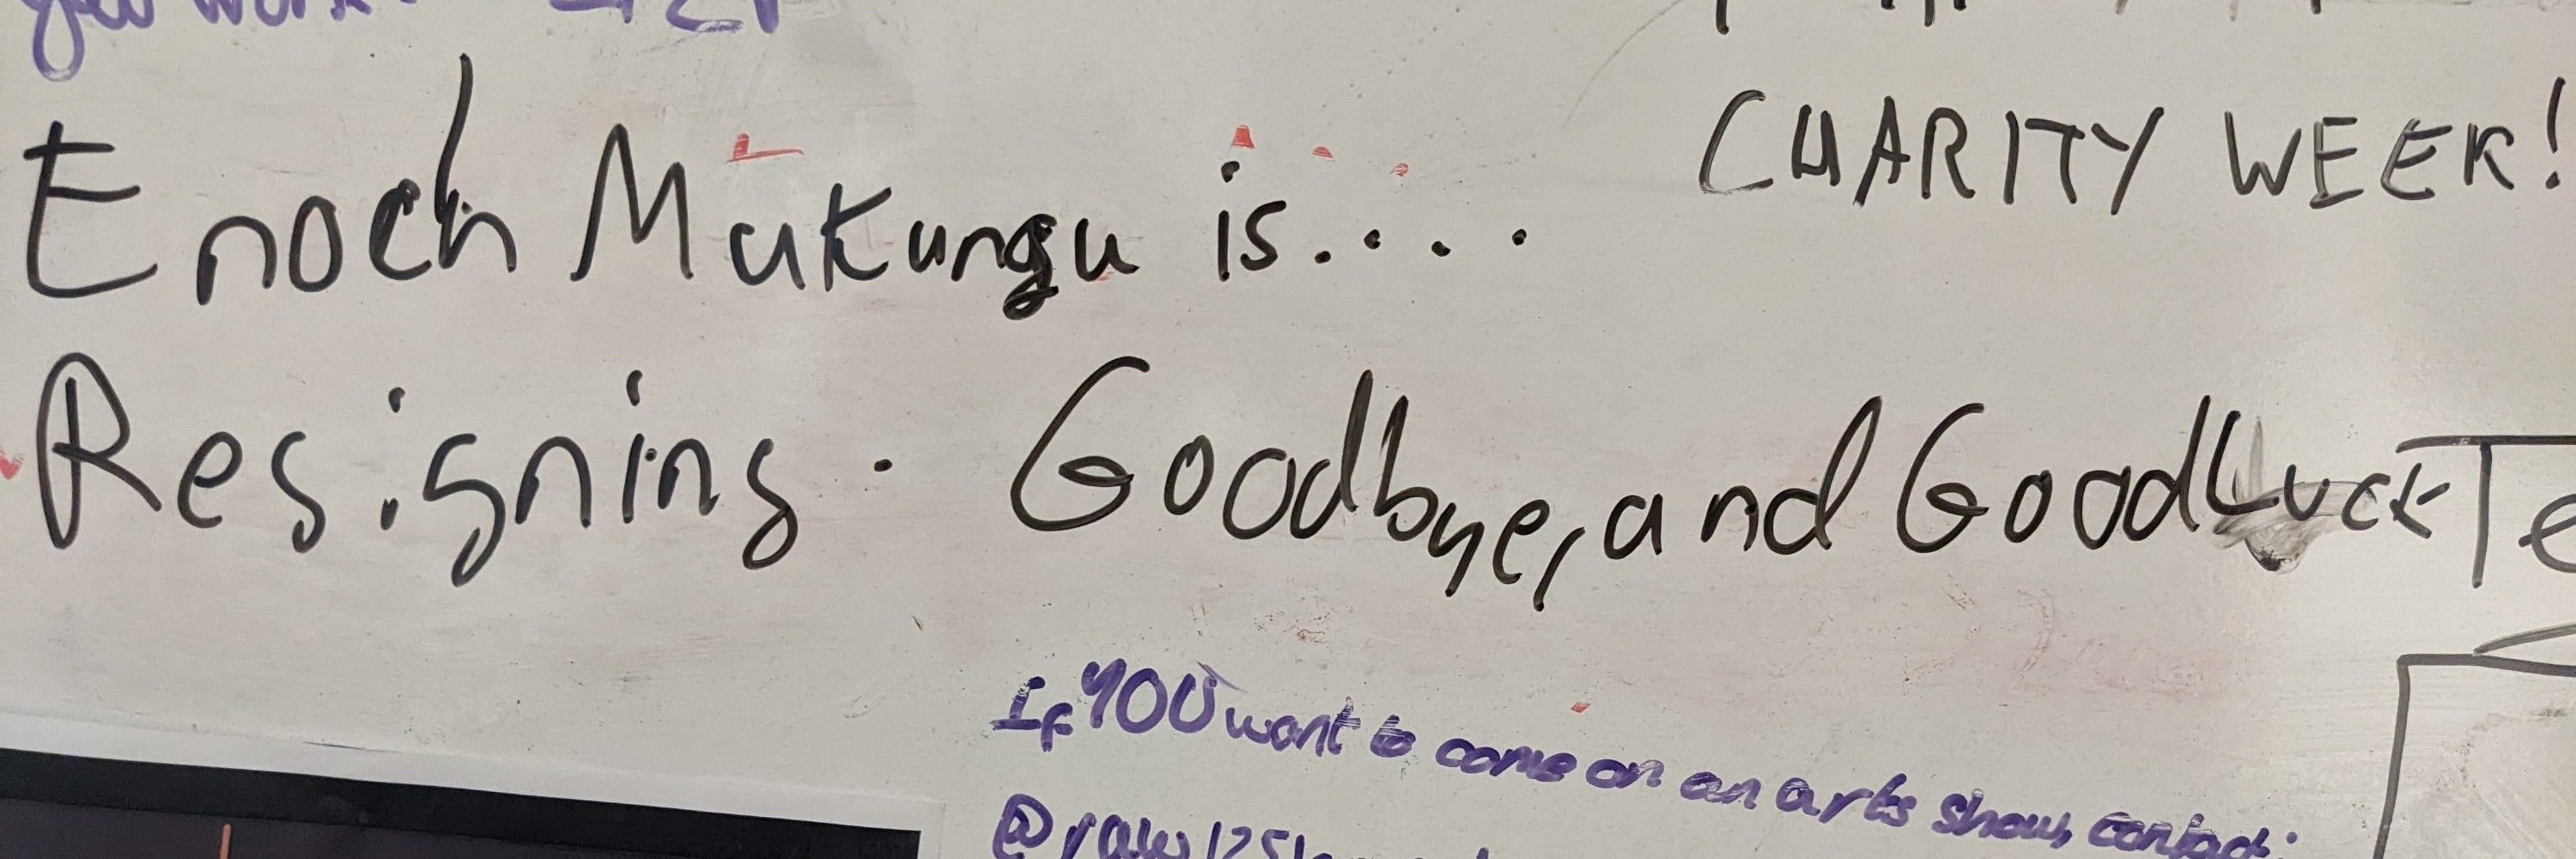 Enoch Mukungu is....
CHARITY WEEK!
Resigning. Goodbye, and Good Luck
If YOU want to come on an arts show, contact: